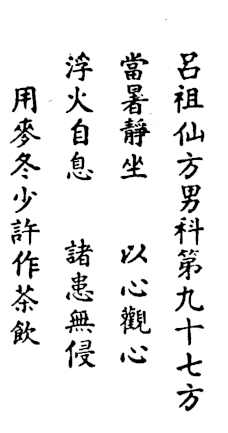 呂祖仙方男科第九十七方
當暑靜坐　以心觀心
浮火自息　諸患無侵
用麥冬少許作茶飲